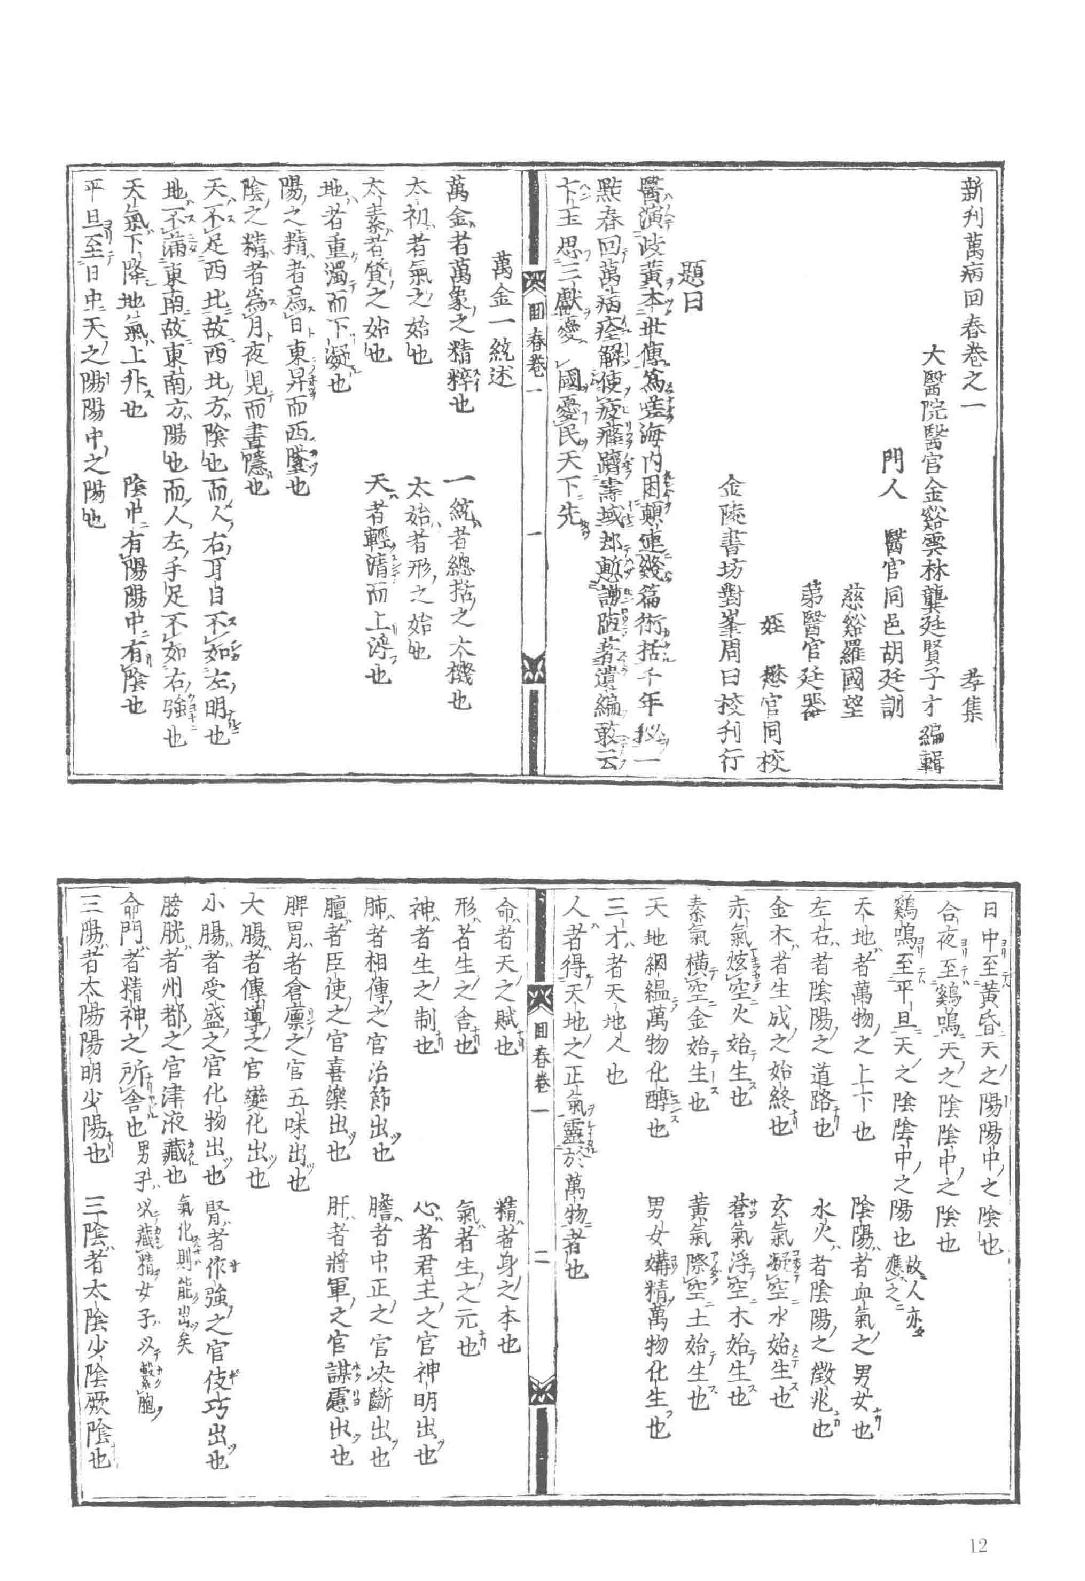 新刋萬病回春卷之一　孝集
大醫院醫官金谿雲林龔廷賢子才編輯
門人　醫官同邑胡廷訓
慈谿羅國望
弟醫官廷器
姪　懋官同校
金陵書坊對峯周曰校刊行
題曰
醫演岐黃本世傳篤嗟海内困顛連幾篇術括千年秘一
點春回萬病痊解使疲癃躋壽域却慙謭陋著遺編敢云
卞玉思三獻憂國憂民天下先
回春卷一
一
萬金一統述
萬金者萬象之精粹也　一統者總括之大機也
太初者氣之始也　太始者形之始也
太素者質之始也　天者輕清而上浮也
地者重濁而下凝也
陽之精者為日東昇而西墜也
陰之精者為月夜見而晝隱也
天不足西北故西北方陰也而人右耳目不如左明也
地不滿東南故東南方陽也而人左手足不如右強也
天氣下降地氣上升也　陰中有陽陽中有陰也
平旦至日中天之陽陽中之陽也
日中至黃昏天之陽陽中之陰也
合夜至鷄鳴天之陰陰中之陰也
鷄鳴至平旦天之陰陰中之陽也故人亦應之
天地者萬物之上下也　陰陽者血氣之男女也
左右者陰陽之道路也　水火者陰陽之徵兆也
金木者生成之始終也　玄氣凝空水始生也
赤氣炫空火始生也　蒼氣浮空木始生也
素氣橫空金始生也　黃氣際空土始生也
天地絪縕萬物化醇也　男女媾精萬物化生也
三才者天地人也
人者得天地之正氣靈於萬物者也
回春卷一
二
命者天之賦也　精者身之本也
形者生之舍也　氣者生之元也
神者生之制也　心者君主之官神明出也
肺者相傳之官治節出也　膽者中正之官决斷出也
膻者臣使之官喜樂出也　肝者將軍之官謀慮出也
脾胃者倉廪之官五味出也
大腸者傳導之官變化出也
小腸者受盛之官化物出也　腎者作強之官伎巧出也
膀胱者州都之官津液藏也氣化則能出矣
命門者精神之所舍也男子以藏精女子以繫胞
三陽者太陽陽明少陽也　三陰者太陰少陰厥陰也
12